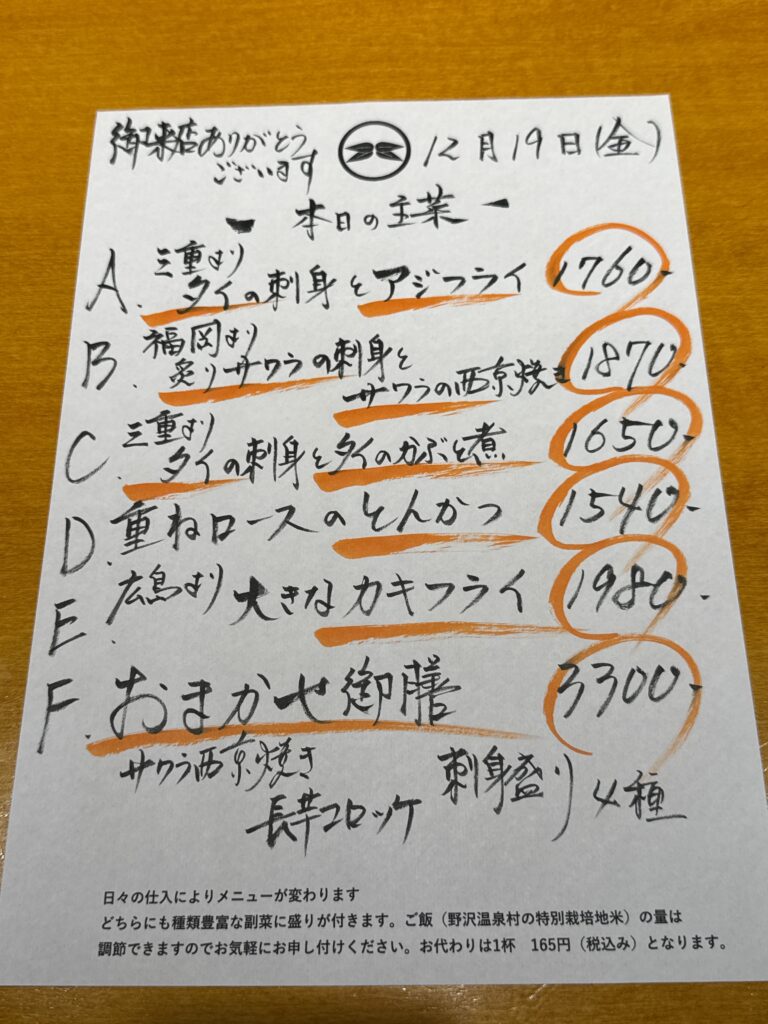 御来店ありがとう
ございます
12月19日(金)
本日の主菜
A. 三重より
タイの刺身とアジフライ 1760-
B. 福岡より
炙りサワラの刺身と
サワラの西京焼き 1870-
C. 三重より
タイの刺身とタイのかぶと煮 1650-
D. 重ねロースのとんかつ 1540-
E. 広島より 大きなカキフライ 1980-
F. おまかせ御膳 3300-
サワラ西京焼き
刺身盛り4種
長芋コロッケ
日々の仕入によりメニューが変わります
どちらにも種類豊富な副菜に盛りが付きます。ご飯（野沢温泉村の特別栽培地米）の量は
調節できますのでお気軽にお申し付けください。お代わりは1杯 165円（税込み）となります。